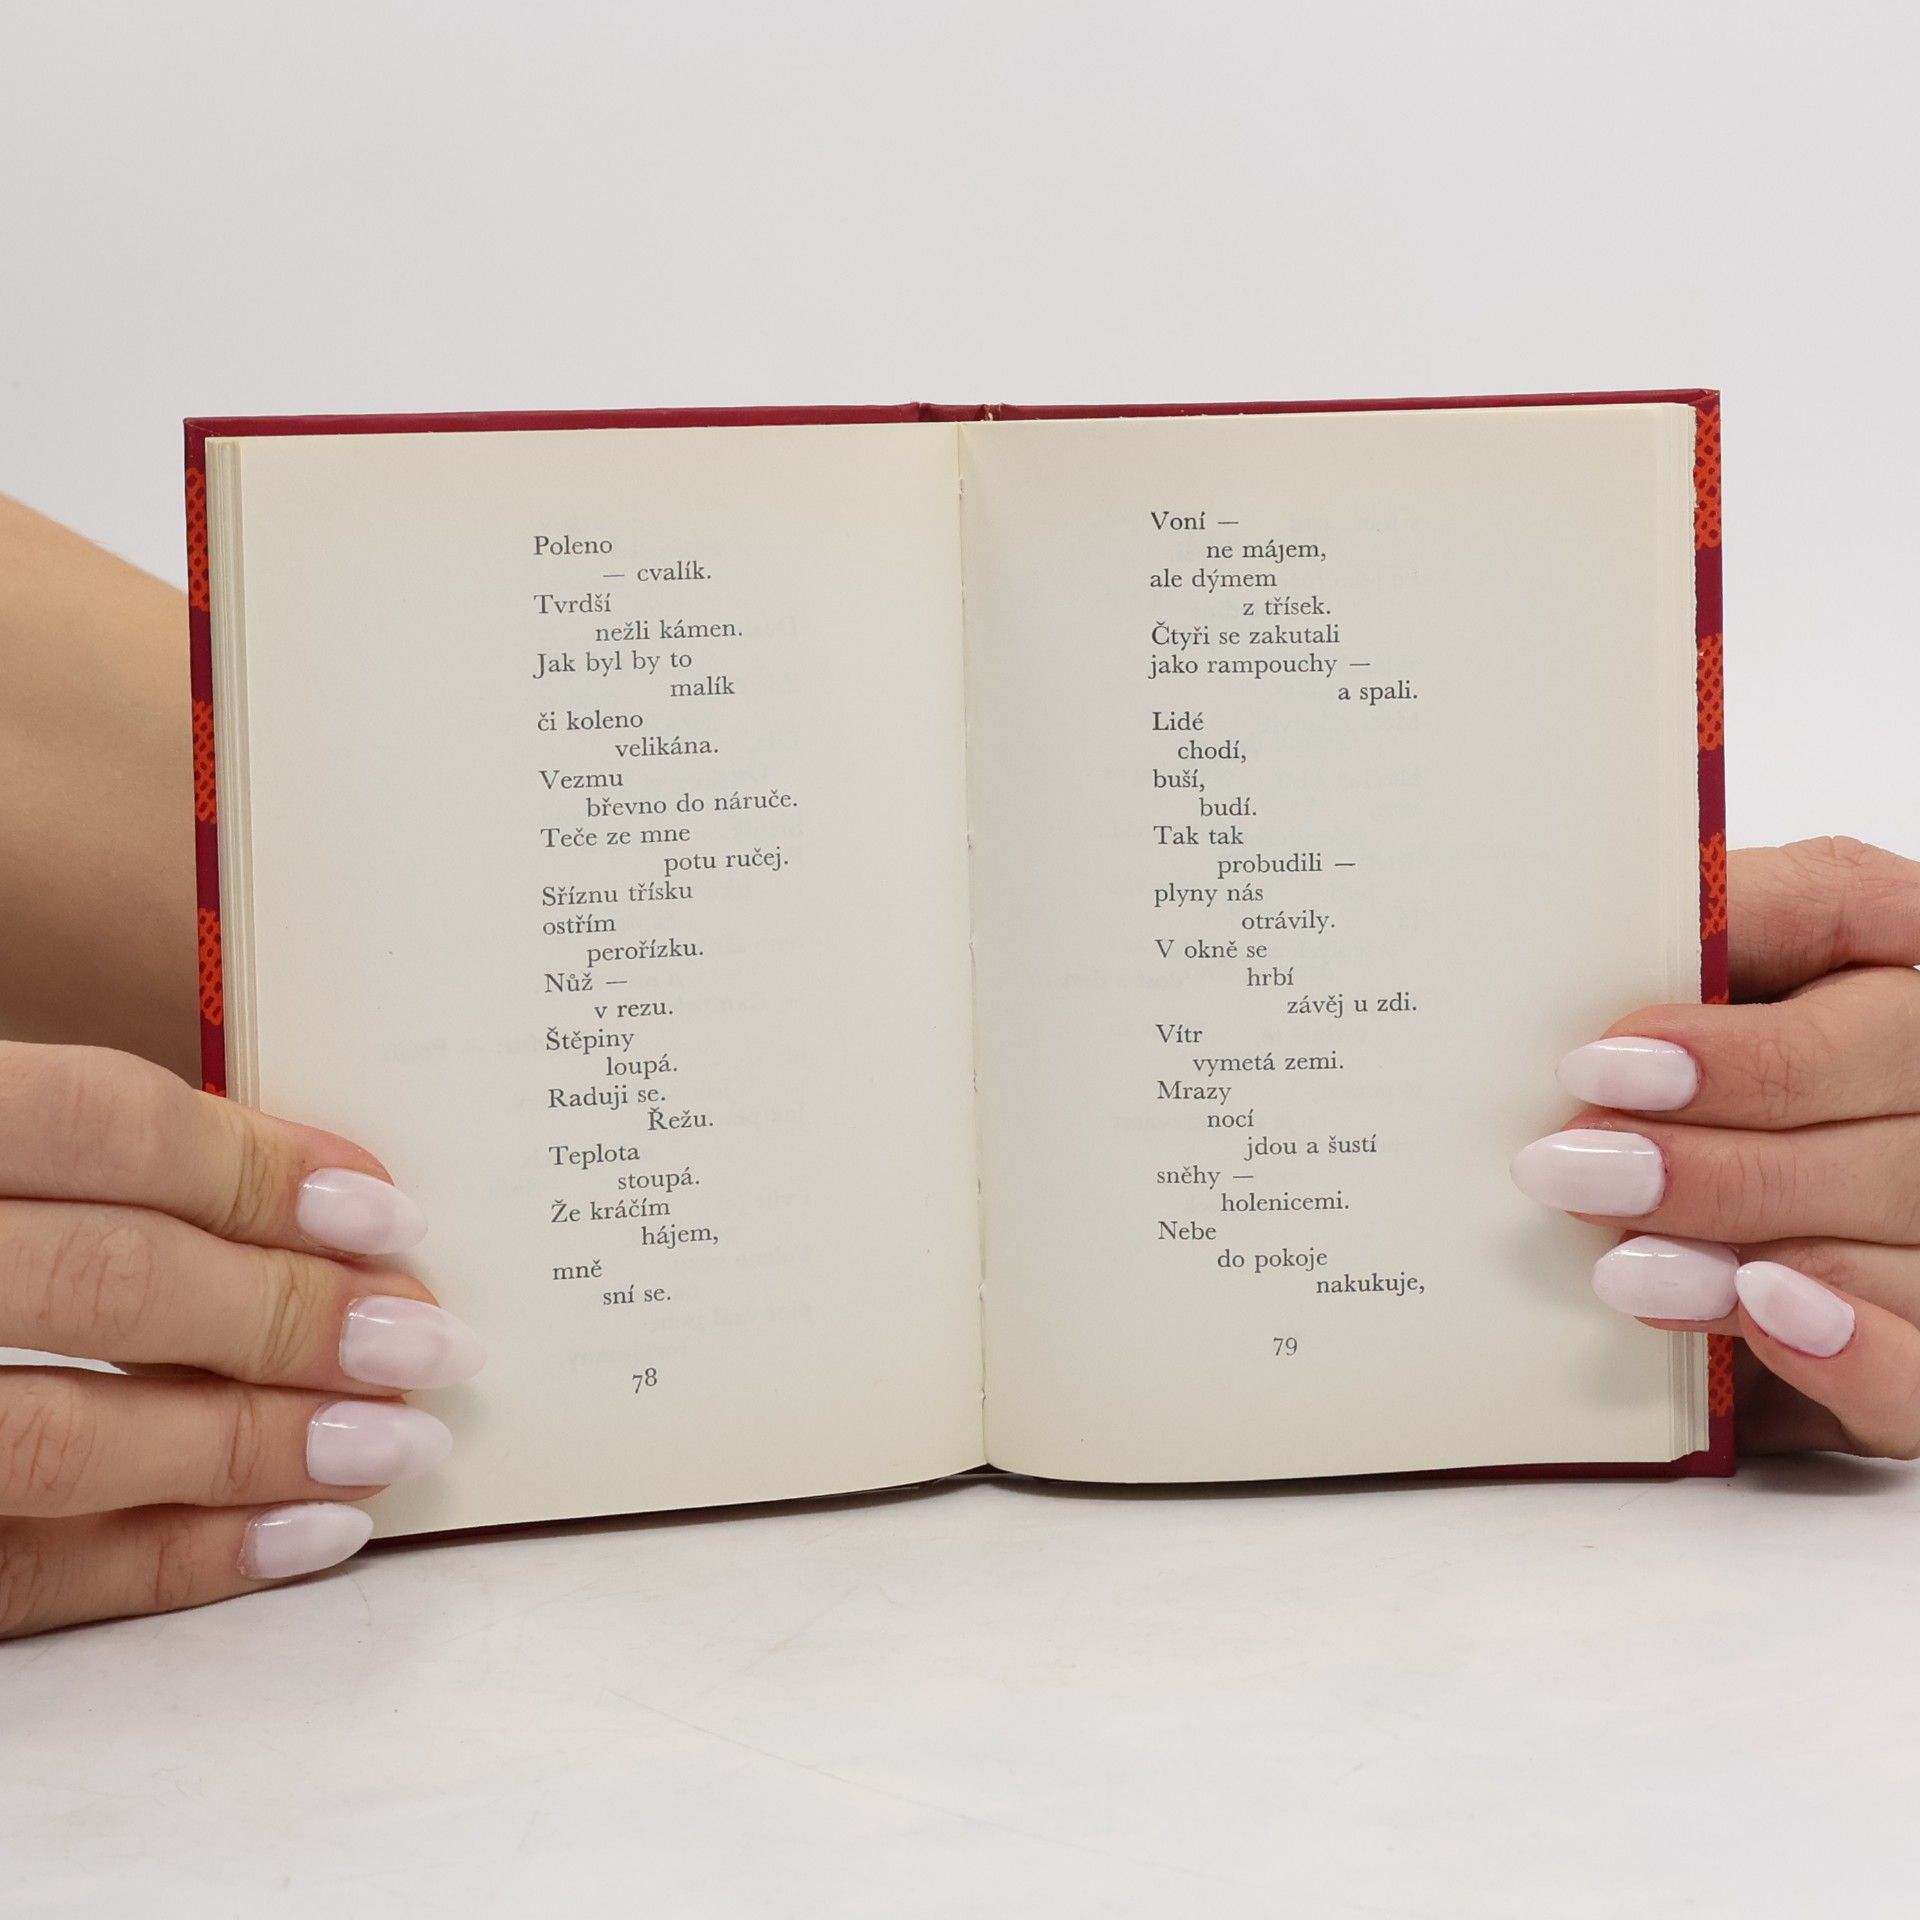 Poleno
— cvalík.
Tvrdší
nežli kámen.
Jak byl by to
malík
či koleno
velikána.
Vezmu
břevno do náruče.
Teče ze mne
potu ručej.
Sříznu třísku
ostřím
perořízku.
Nůž —
v rezu.
Štěpiny
loupá.
Raduji se.
Řežu.
Teplota
stoupá.
Že kráčím
hájem,
mně
sní se.
78
Voní —
ne májem,
ale dýmem
z třísek.
Čtyři se zakutali
jako rampouchy —
a spali.
Lidé
chodí,
buší,
budí.
Tak tak
probudili —
plyny nás
otrávily.
V okně se
hrbí
závěj u zdi.
Vítr
vymetá zemi.
Mrazy
nocí
jdou a šustí
sněhy —
holenicemi.
Nebe
do pokoje
nakukuje,
79